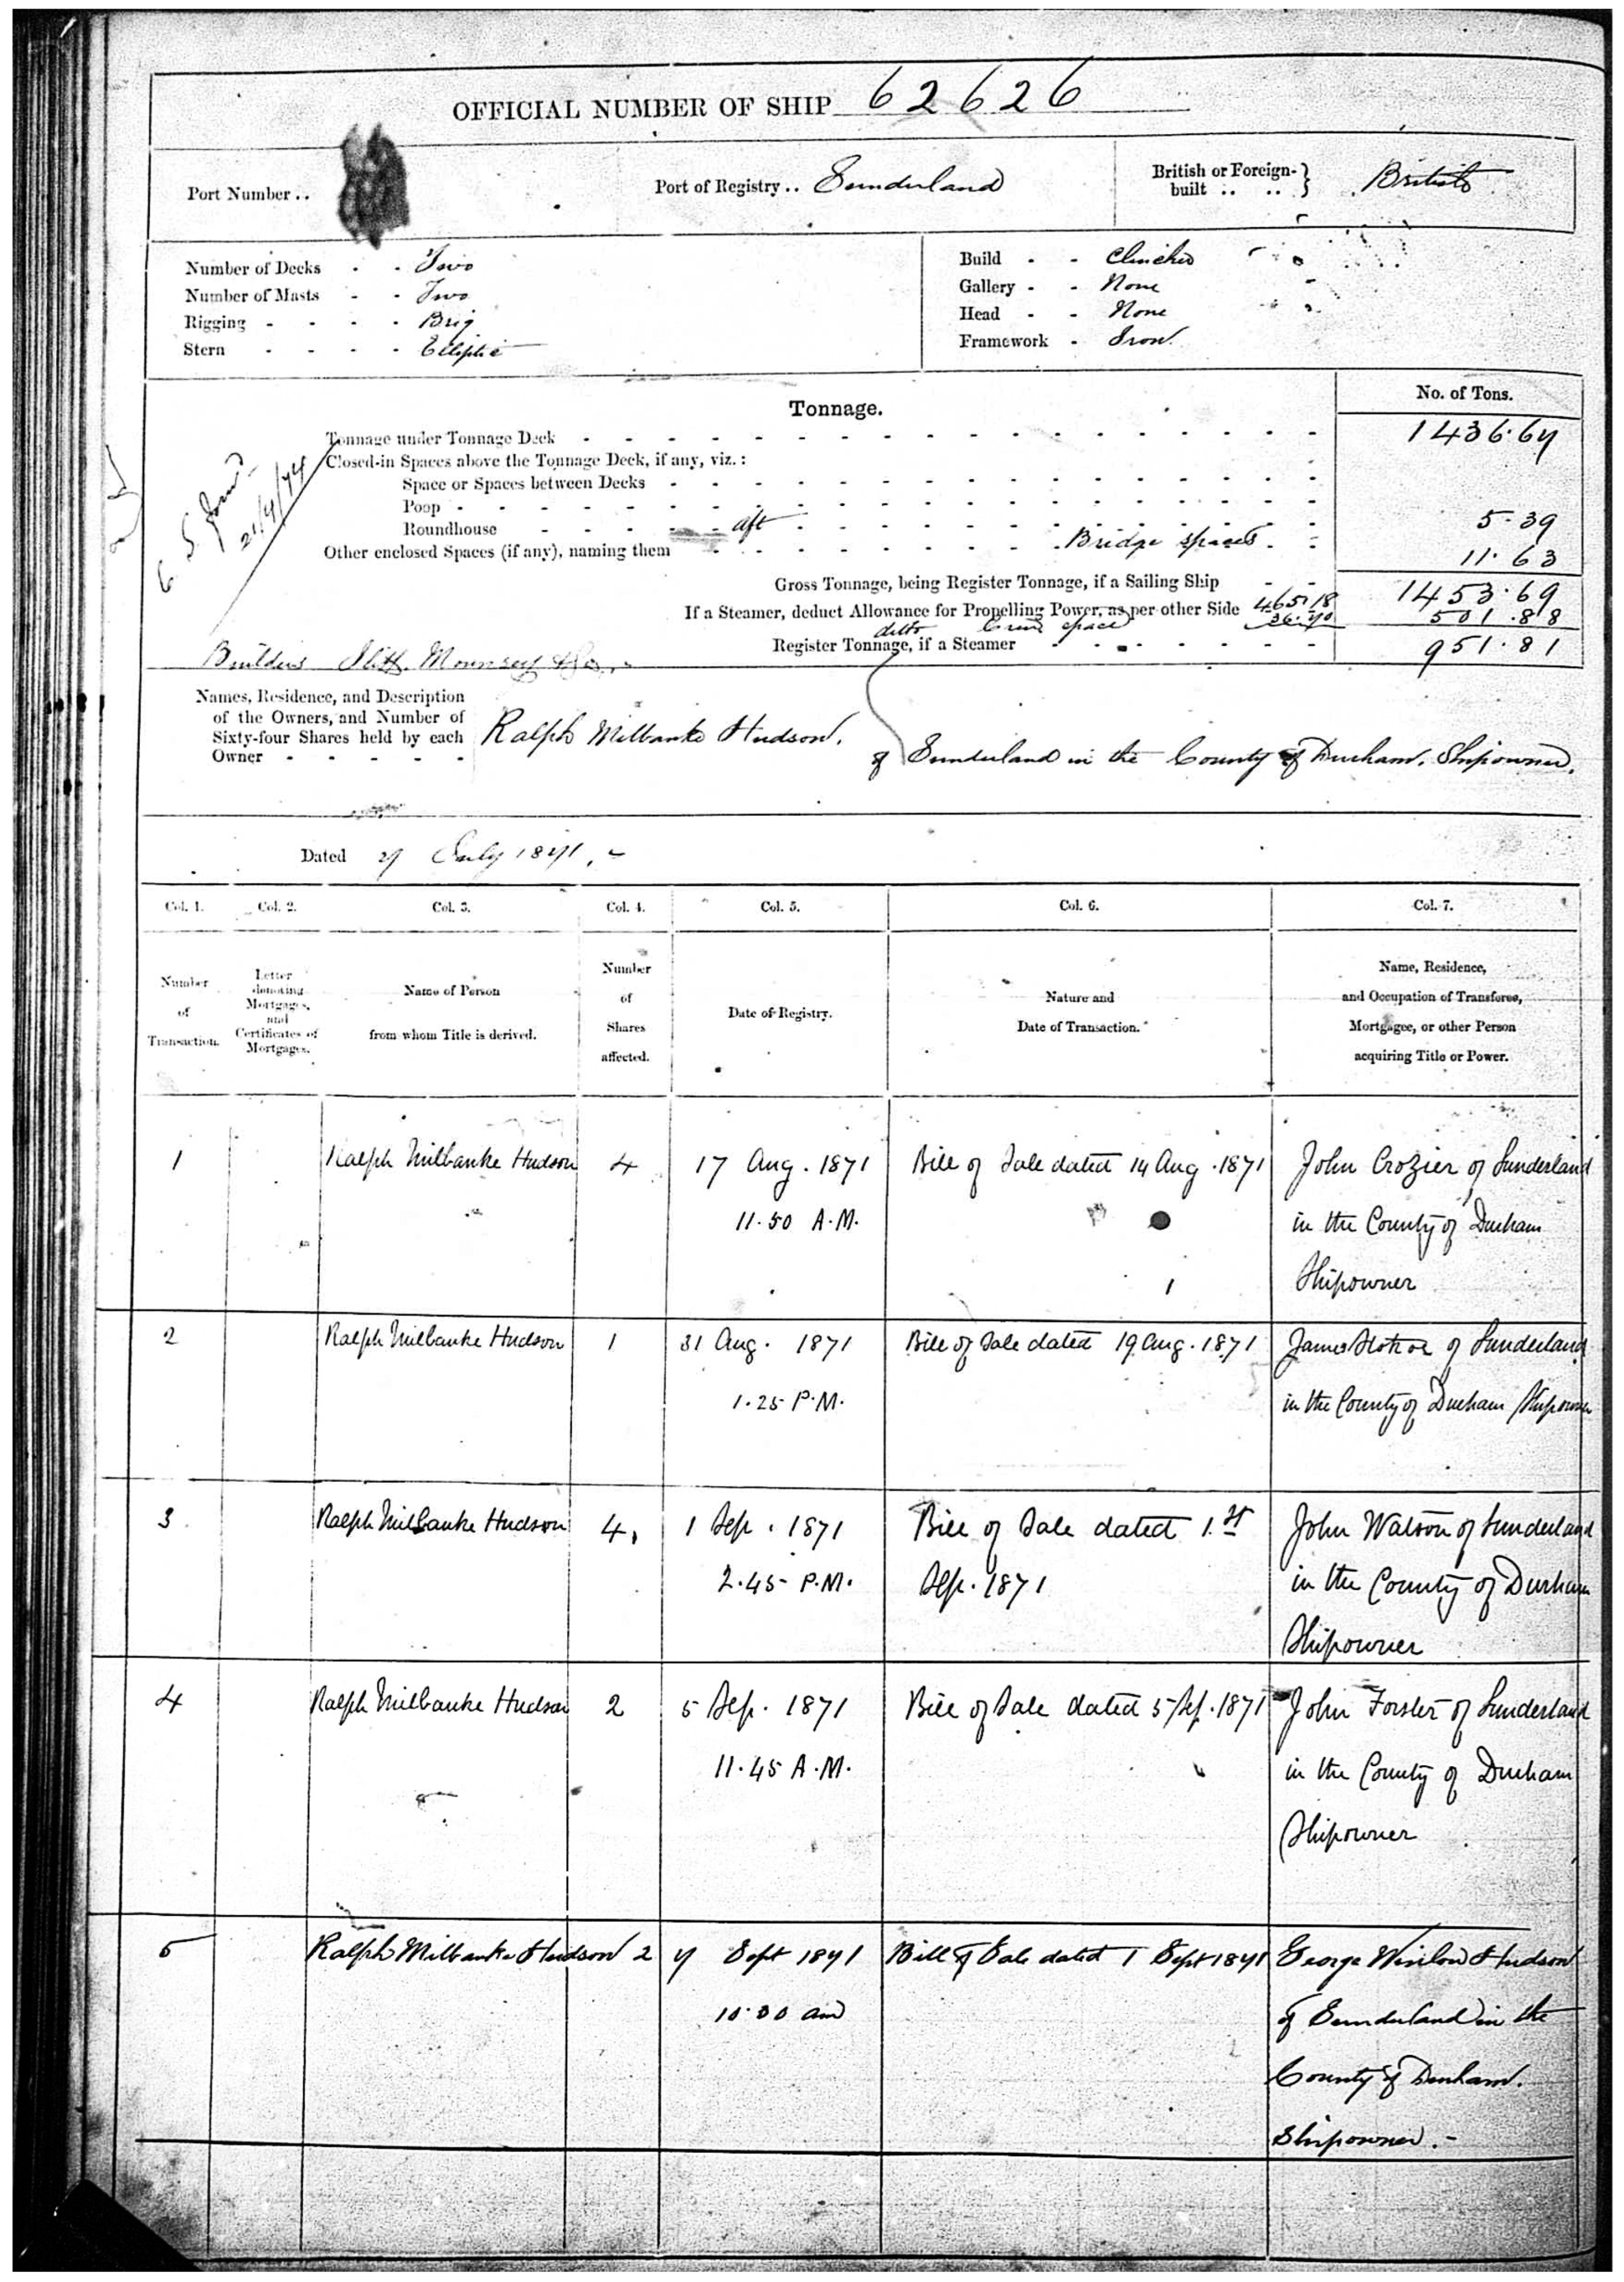 OFFICIAL NUMBER OF SHIP 62626
Port Number ..
Port of Registry .. Sunderland
British or Foreign-built .. .. British
Number of Decks - - Two
Number of Masts - - Two
Rigging - - - - Brig
Stern - - - - Elliptic
Build - - Clinched
Gallery - - None
Head - - None
Framework - Iron
Tonnage.
No. of Tons.
Tonnage under Tonnage Deck 1436.67
Closed-in Spaces above the Tonnage Deck, if any, viz.:
Space or Spaces between Decks
Poop
Roundhouse aft 5.39
Other enclosed Spaces (if any), naming them Bridge spaces 11.63
Gross Tonnage, being Register Tonnage, if a Sailing Ship 1453.69
If a Steamer, deduct Allowance for Propelling Power, as per other Side 465.18 501.88
ditto Crew space 36.70
Register Tonnage, if a Steamer 951.81
21/4/74
Builders Iliff, Mounsey & Co.
Names, Residence, and Description
of the Owners, and Number of
Sixty-four Shares held by each
Owner - - - - -
Ralph Milbanke Hudson.
of Sunderland in the County of Durham. Shipowner.
Dated 27 July 1871.
Col. 1. Col. 2. Col. 3. Col. 4. Col. 5. Col. 6. Col. 7.
Number of Transaction.
Letter denoting Mortgages, and Certificates of Mortgages.
Name of Person from whom Title is derived.
Number of Shares affected.
Date of Registry.
Nature and Date of Transaction.
Name, Residence, and Occupation of Transferee, Mortgagee, or other Person acquiring Title or Power.
1 Ralph Milbanke Hudson 4 17 Aug. 1871 Bill of Sale dated 14 Aug. 1871 John Crozier of Sunderland
11.50 A.M. in the County of Durham
Shipowner
2 Ralph Milbanke Hudson 1 31 Aug. 1871 Bill of Sale dated 19 Aug. 1871 James Stokoe of Sunderland
1.25 P.M. in the County of Durham Shipowner
3 Ralph Milbanke Hudson 4 1 Sep. 1871 Bill of Sale dated 1st John Watson of Sunderland
2.45 P.M. Sep. 1871 in the County of Durham
Shipowner
4 Ralph Milbanke Hudson 2 5 Sep. 1871 Bill of Sale dated 5 Sep. 1871 John Forster of Sunderland
11.45 A.M. in the County of Durham
Shipowner
5 Ralph Milbanke Hudson 2 7 Sept 1871 Bill of Sale dated 1 Sept 1871 George Winlow Hudson
10.30 am of Sunderland in the
County of Durham.
Shipowner.-